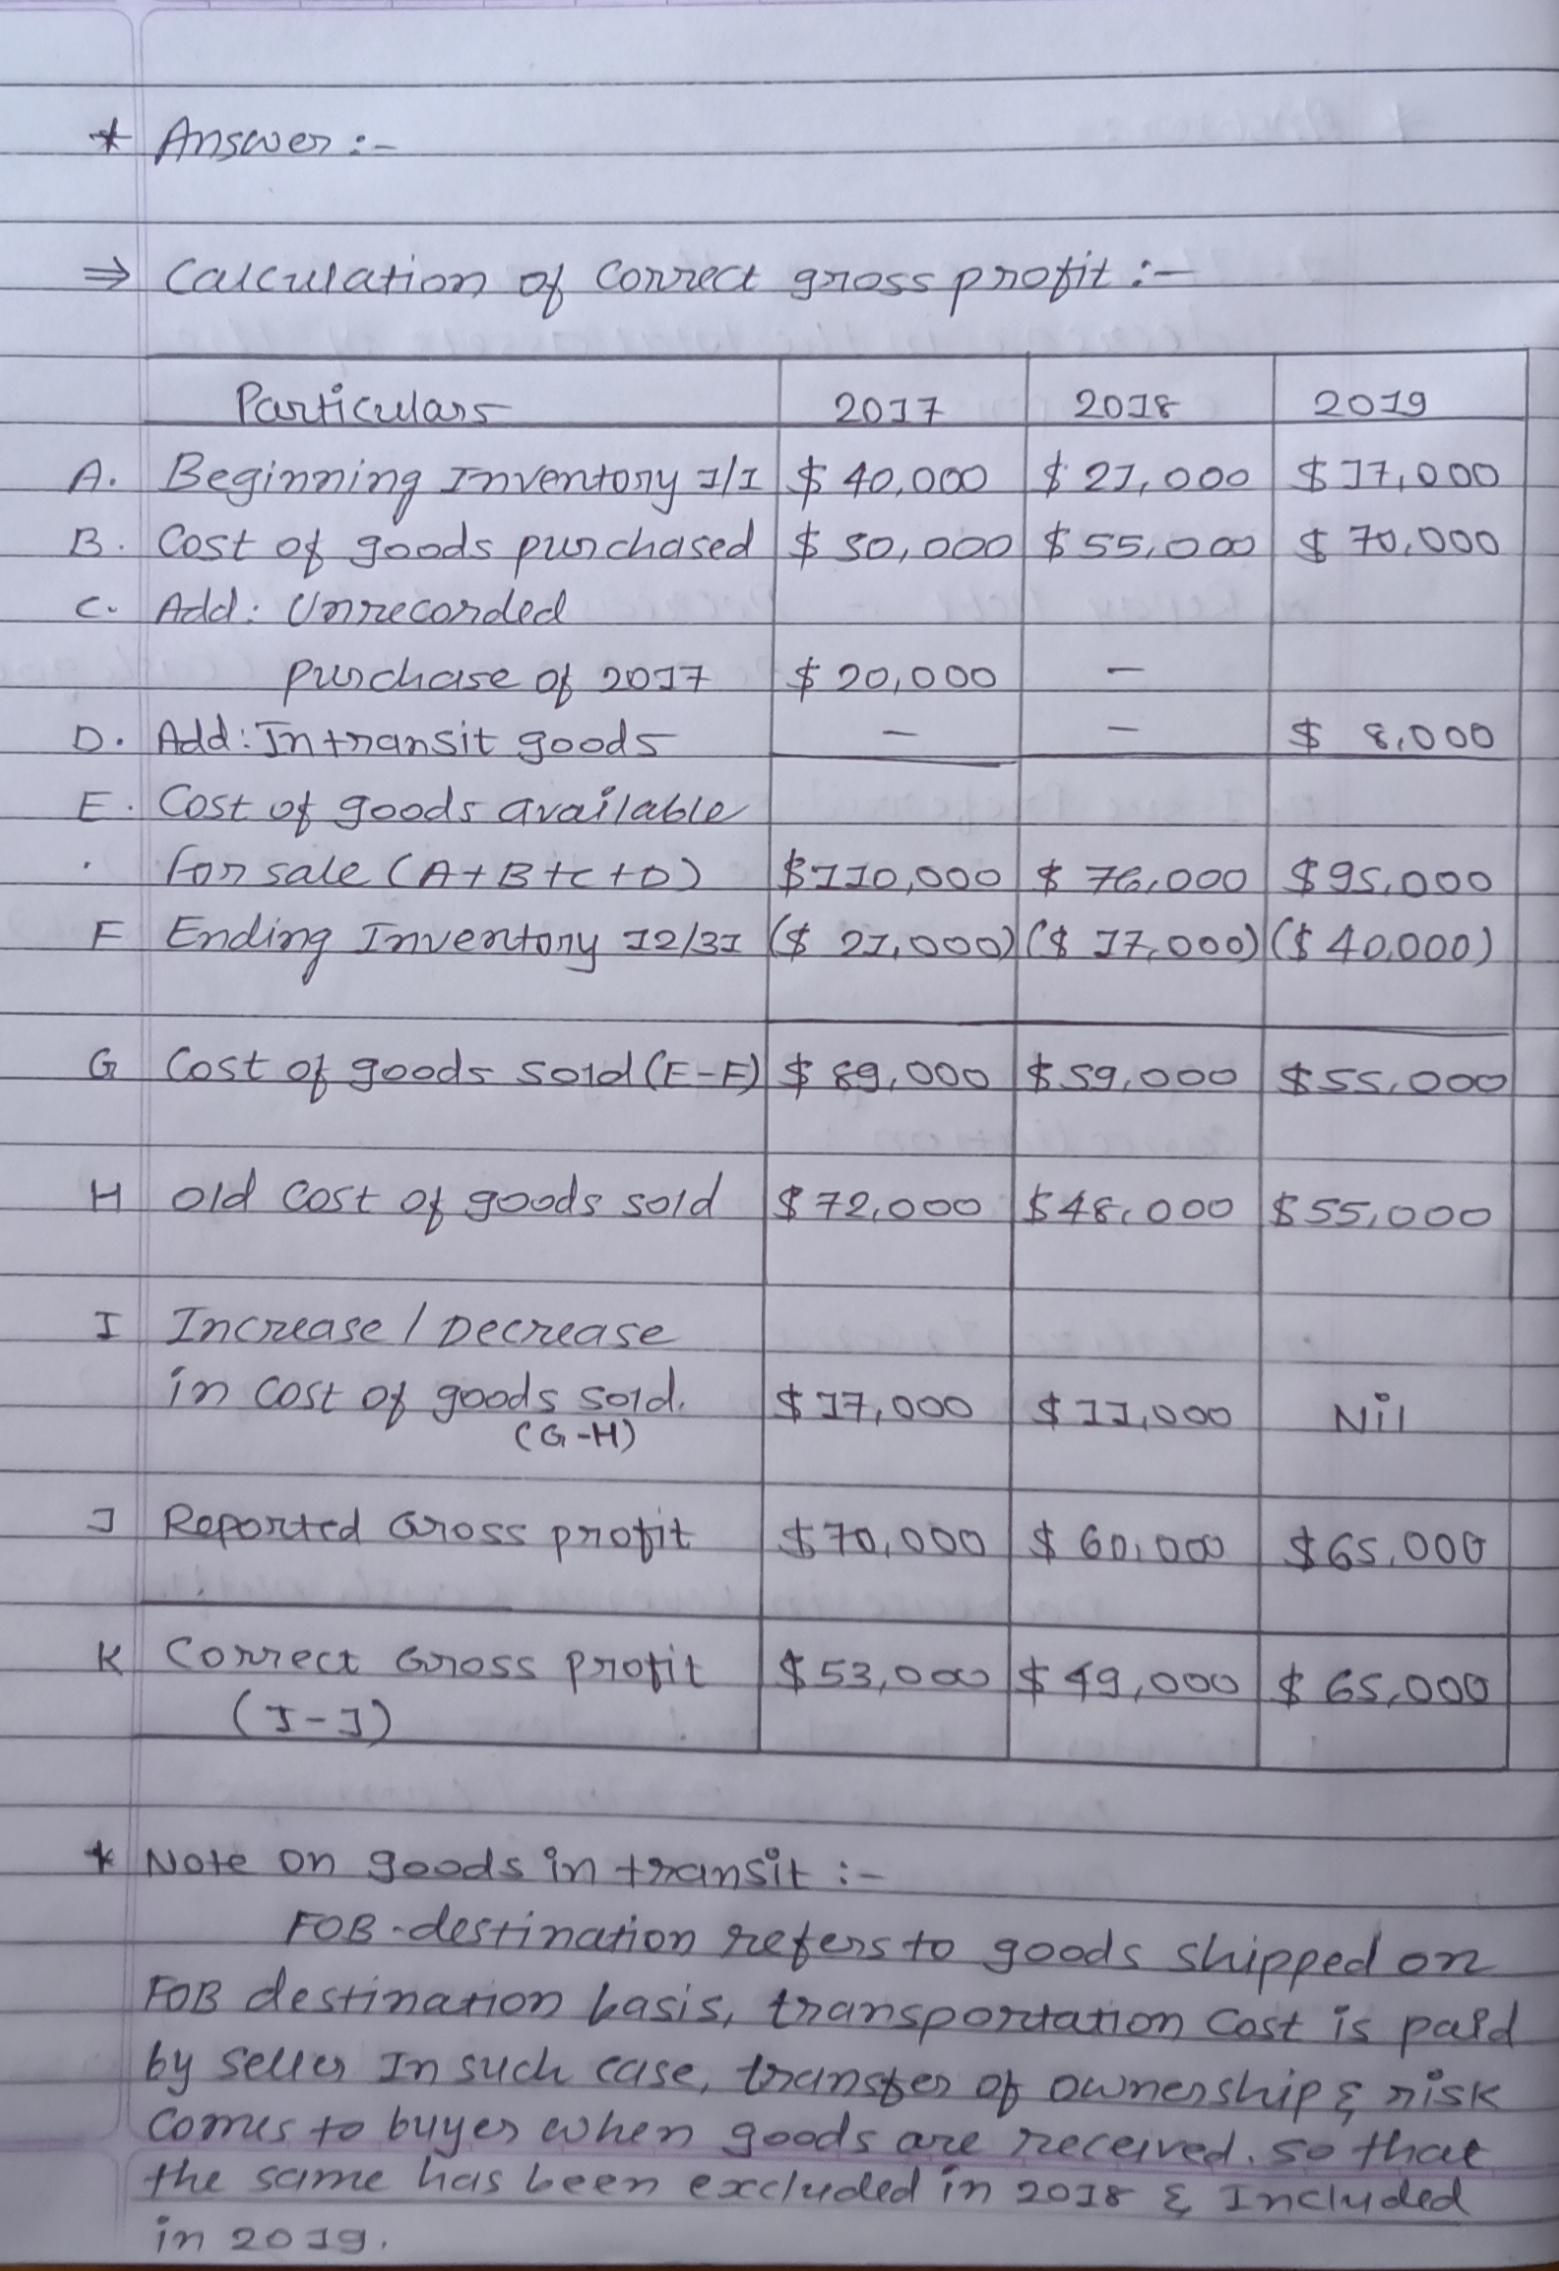 * Answer :-
⇒ Calculation of Correct gross profit :-
Particulars 2017 2018 2019
A. Beginning Inventory 1/1 $ 40,000 $ 21,000 $ 17,000
B. Cost of goods purchased $ 50,000 $ 55,000 $ 70,000
C. Add: Unrecorded
purchase of 2017 $ 20,000 –
D. Add: Intransit goods – – $ 8,000
E. Cost of goods available
. for sale (A+B+C+D) $110,000 $ 76,000 $95,000
F Ending Inventory 12/31 ($ 21,000) ($ 17,000) ($ 40,000)
G Cost of goods sold (E-F) $ 89,000 $59,000 $55,000
H old cost of goods sold $ 72,000 $48,000 $55,000
I Increase / Decrease
in cost of goods sold. $ 17,000 $ 11,000 Nil
(G-H)
J Reported Gross profit $70,000 $ 60,000 $65,000
K Correct Gross profit $53,000 $ 49,000 $ 65,000
(J-I)
* Note on goods in transit :-
FOB-destination refers to goods shipped on
FOB destination basis, transportation cost is paid
by seller In such case, transfer of ownership & risk
comes to buyer when goods are received. so that
the same has been excluded in 2018 & Included
in 2019.